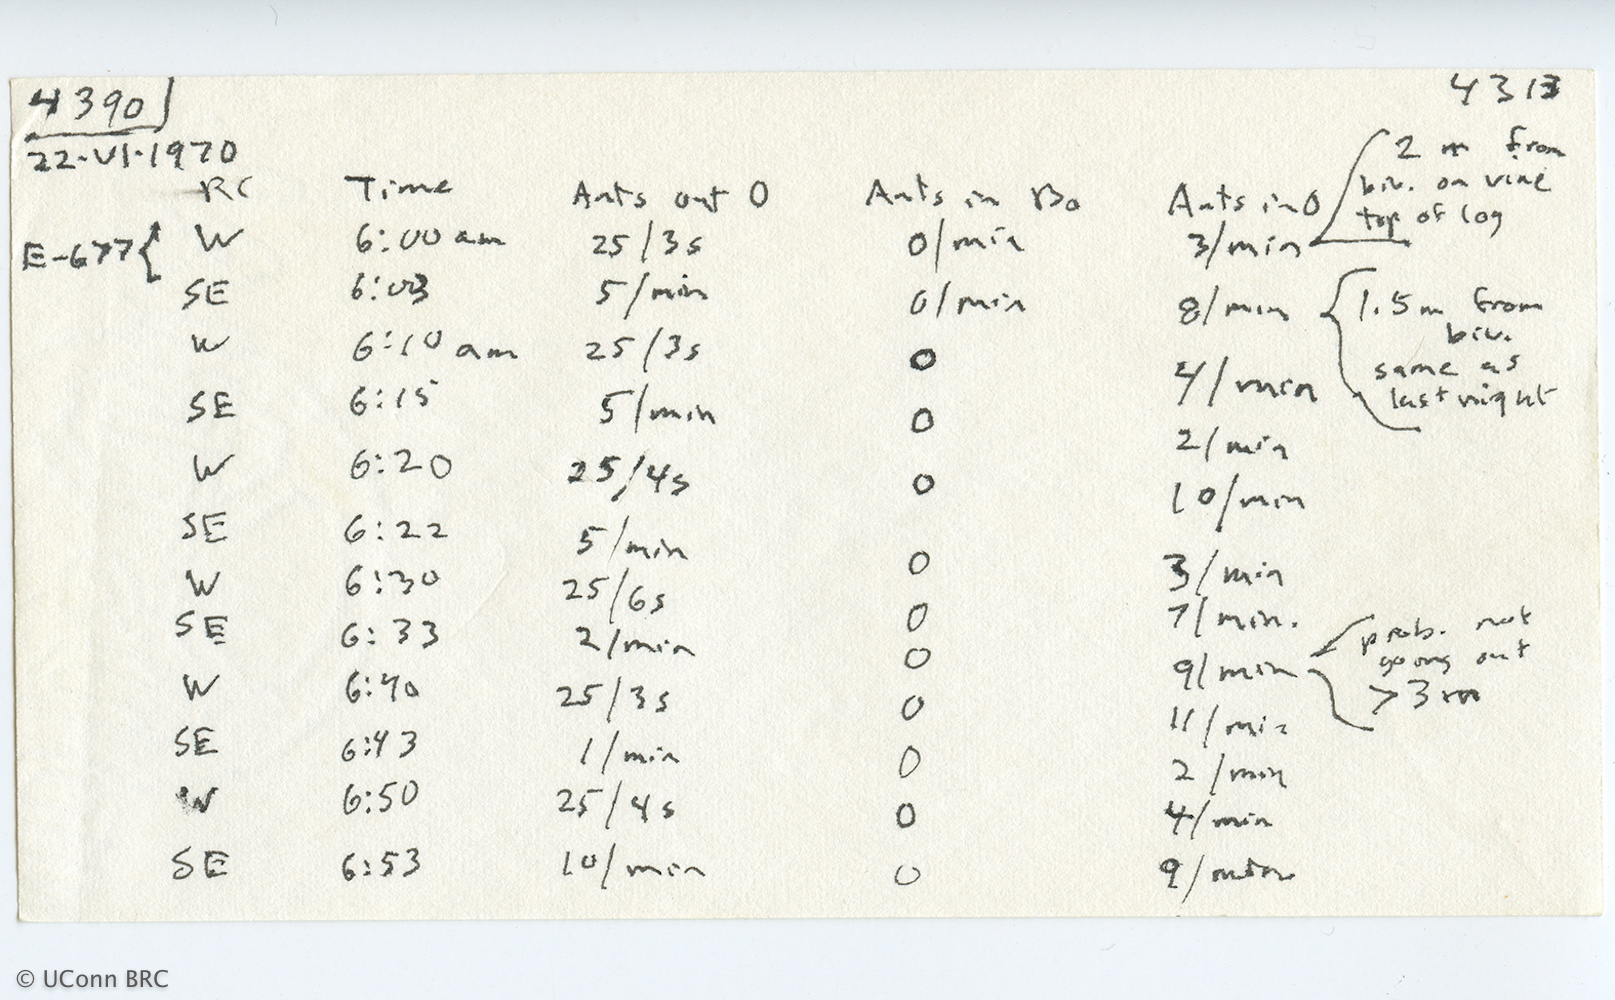 4390 4313
22-VI-1970
RC Time Ants out 0 Ants in Bo Ants in 0 2 m from
biv. on vine
top of log
E-677 { W 6:00 am 25/3s 0/min 3/min
SE 6:03 5/min 0/min 8/min { 1.5m from
biv.
same as
last night
W 6:10 am 25/3s 0 4/min
SE 6:15 5/min 0 2/min
W 6:20 25/4s 0 10/min
SE 6:22 5/min 0 3/min
W 6:30 25/6s 0 7/min.
SE 6:33 2/min 0 9/min prob. not
going out
> 3 m
W 6:40 25/3s 0 11/min
SE 6:43 1/min 0 2/min
W 6:50 25/4s 0 4/min
SE 6:53 10/min 0 9/min
© UConn BRC